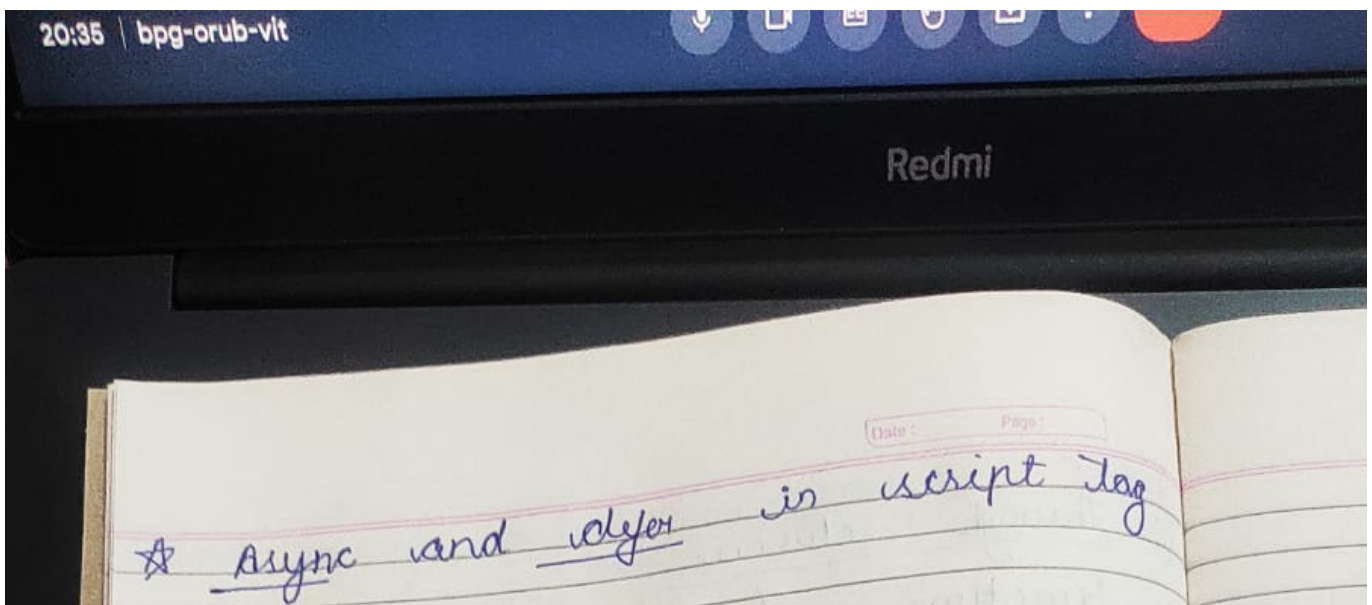 20:35 | bpg-orub-vlt
CC
Redmi
Date : Page :
☆ Async and defer in script tag